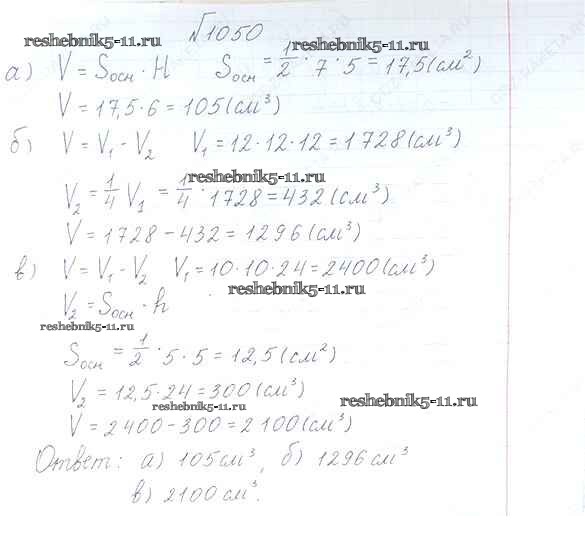 √1050
reshebnik5-11.ru
reshebnik5-11.ru
а) V = Sосн · H   Sосн = 1/2 · 7 · 5 = 17,5 (см²)
V = 17,5 · 6 = 105 (см³)
б) V = V₁ - V₂   V₁ = 12 · 12 · 12 = 1728 (см³)
reshebnik5-11.ru
V₂ = 1/4 V₁ = 1/4 · 1728 = 432 (см³)
V = 1728 - 432 = 1296 (см³)
в) V = V₁ - V₂   V₁ = 10 · 10 · 24 = 2400 (см³)
reshebnik5-11.ru
V₂ = Sосн · h
reshebnik5-11.ru
Sосн = 1/2 · 5 · 5 = 12,5 (см²)
V₂ = 12,5 · 24 = 300 (см³)
reshebnik5-11.ru
reshebnik5-11.ru
V = 2400 - 300 = 2100 (см³)
Ответ: а) 105 см³, б) 1296 см³
в) 2100 см³.